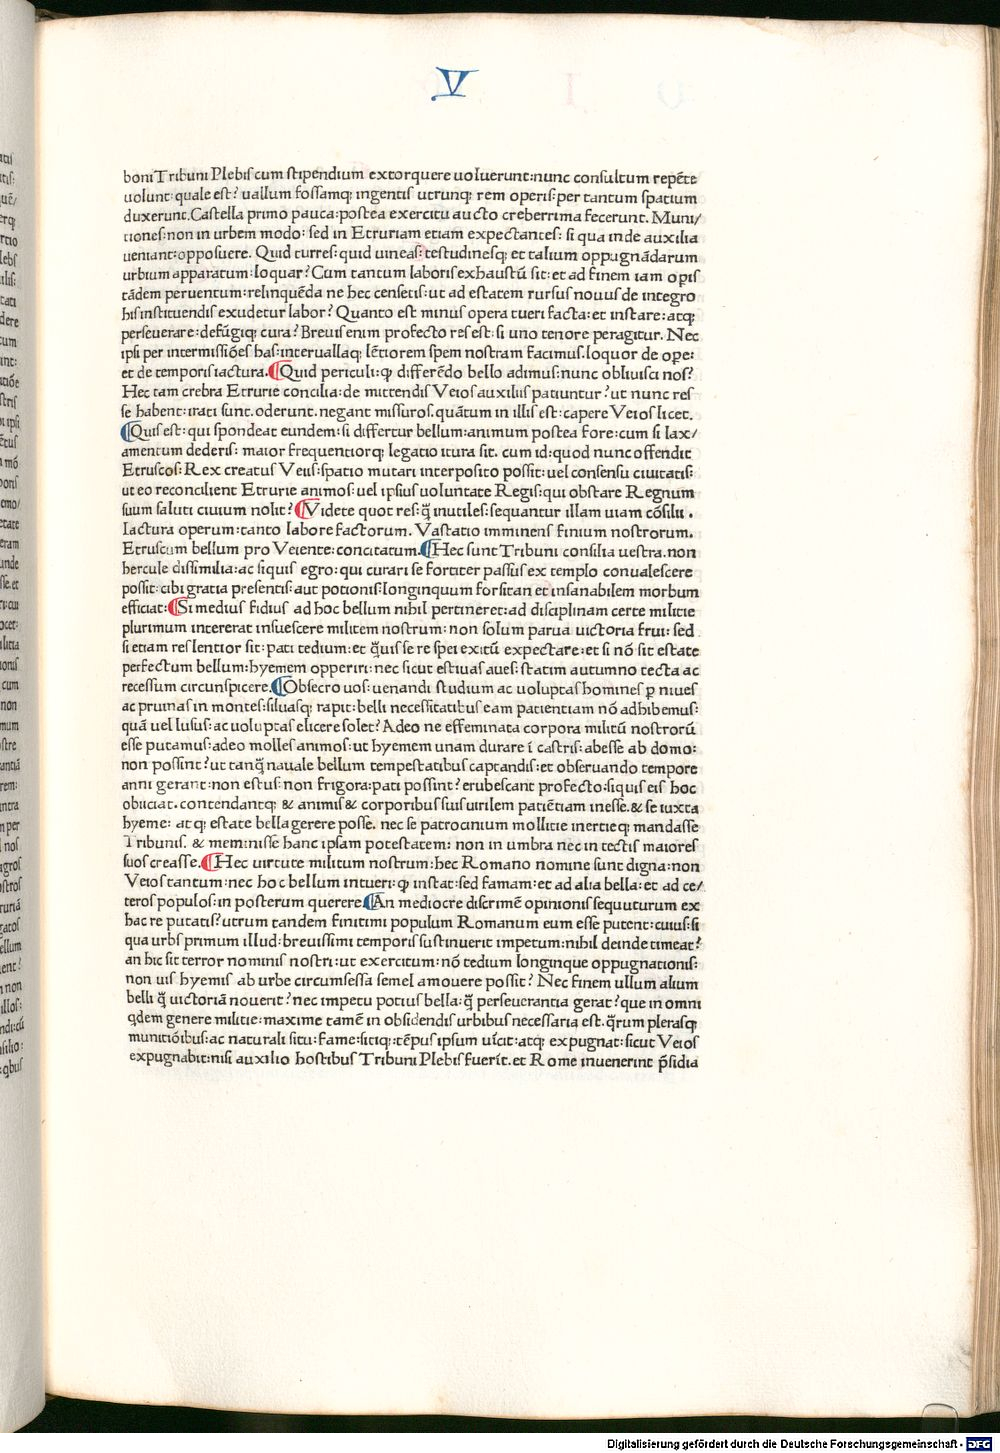 V
boni Tribuni Plebis cum stipendium extorquere voluerunt: nunc consultum repēte
volunt: quale est? vallum fossamq; ingentis utrunq; rem operis: per tantum spatium
duxerunt. Castella primo pauca: postea exercitu aucto creberrima fecerunt. Muni/
tiones: non in urbem modo: sed in Etruriam etiam expectantes: si qua inde auxilia
veniant: opposuere. Quid turres: quid vineas: testudinesq; et talium oppugnādarum
urbium apparatum: loquar? Cum tantum laboris exhaustū sit: et ad finem iam opis
tādem perventum: relinquēda ne hec censetis: ut ad estatem rursus novus de integro
his instituendis exudetur labor? Quanto est minus opera tueri facta: et instare: atq;
perseverare: defūgiq; cura? Brevis enim profecto res est: si uno tenore peragitur. Nec
ipsi per intermissiōes has: intervallaq; lētiorem spem nostram facimus. loquor de ope:
et de temporis iactura. ¶Quid periculi: q̄ differēdo bello adimus: nunc oblivisci nos?
Hec tam crebra Etrurie concilia: de mittendis Veios auxiliis patiuntur? ut nunc res
se habent: irati sunt. oderunt. negant missuros. quātum in illis est: capere Veios licet.
¶Quis est: qui spondeat eundem: si differtur bellum: animum postea fore: cum si lax/
amentum dederis: maior frequentiorq; legatio itura sit. cum id: quod nunc offendit
Etruscos: Rex creatus Veiis: spatio mutari interposito possit: vel consensu civitatis:
ut eo reconcilient Etrurie animos: vel ipsius voluntate Regis: qui obstare Regnum
suum saluti civium nolit? ¶Videte quot res: q̄ inutiles: sequantur illam viam cōsilii.
Iactura operum: tanto labore factorum. Vastatio imminens finium nostrorum.
Etruscum bellum pro Veiente: concitatum. ¶Hec sunt Tribuni consilia vestra. non
hercule dissimilia: ac si quis egro: qui curari se fortiter passus ex templo convalescere
possit: cibi gratia presentis: aut potionis: longinquum forsitan et insanabilem morbum
efficiat: ¶Si medius fidius ad hoc bellum nihil pertineret: ad disciplinam certe militie
plurimum intererat insuescere militem nostrum: non solum parua victoria frui: sed
si etiam res lentior sit: pati tedium: et q̄vis se re spei exitū expectare: et si nō sit estate
perfectum bellum: hyemem opperiri: nec sicut estivas aves: statim autumno tecta ac
recessum circunspicere. ¶Obsecro vos: venandi studium ac voluptas homines p nives
ac pruinas in montes: silvasq; rapit: belli necessitatibus eam patientiam nō adhibemus:
quā vel lusus: ac voluptas elicere solet? Adeo ne effeminata corpora militū nostrorū
esse putamus: adeo molles animos: ut hyemem unam durare ī castris: abesse ab domo:
non possint? ut tanq̄ navale bellum tempestatibus captandis: et observando tempore
anni gerant: non estus: non frigora: pati possint? erubescant profecto: si quis eis hoc
obiiciat. contendantq; & animis & corporibus suis virilem patiētiam inesse. & se iuxta
hyeme: atq; estate bella gerere posse. nec se patrocinium mollitie inertieq; mandasse
Tribunis. & meminisse hanc ipsam potestatem: non in umbra nec in tectis maiores
suos creasse. ¶Hec virtute militum nostrum: hec Romano nomine sunt digna: non
Veios tantum: nec hoc bellum intueri: q̄ instat: sed famam: et ad alia bella: et ad ce/
teros populos: in posterum querere. ¶An mediocre discrimē opinionis sequuturum ex
hac re putatis? utrum tandem finitimi populum Romanum eum esse putent: cuius: si
qua urbs primum illud: brevissimi temporis sustinuerit impetum: nihil deinde timeat?
an hic sit terror nominis nostri: ut exercitum: nō tedium longinque oppugnationis:
non vis hyemis ab urbe circumsessa semel amovere possit? Nec finem ullum alium
belli q̄ victoriā noverit? nec impetu potius bella: q̄ perseverantia gerat? que in omni
qdem genere militie: maxime tamē in obsidendis urbibus necessaria est. q̄rum plerasq;
munitiōibus: ac naturali situ: fame: sitiq; tēpus ipsum vīcit: atq; expugnat: sicut Veios
expugnabit: nisi auxilio hostibus Tribuni Plebis fuerīt. et Rome invenerint p̄sidia
Digitalisierung gefördert durch die Deutsche Forschungsgemeinschaft - DFG